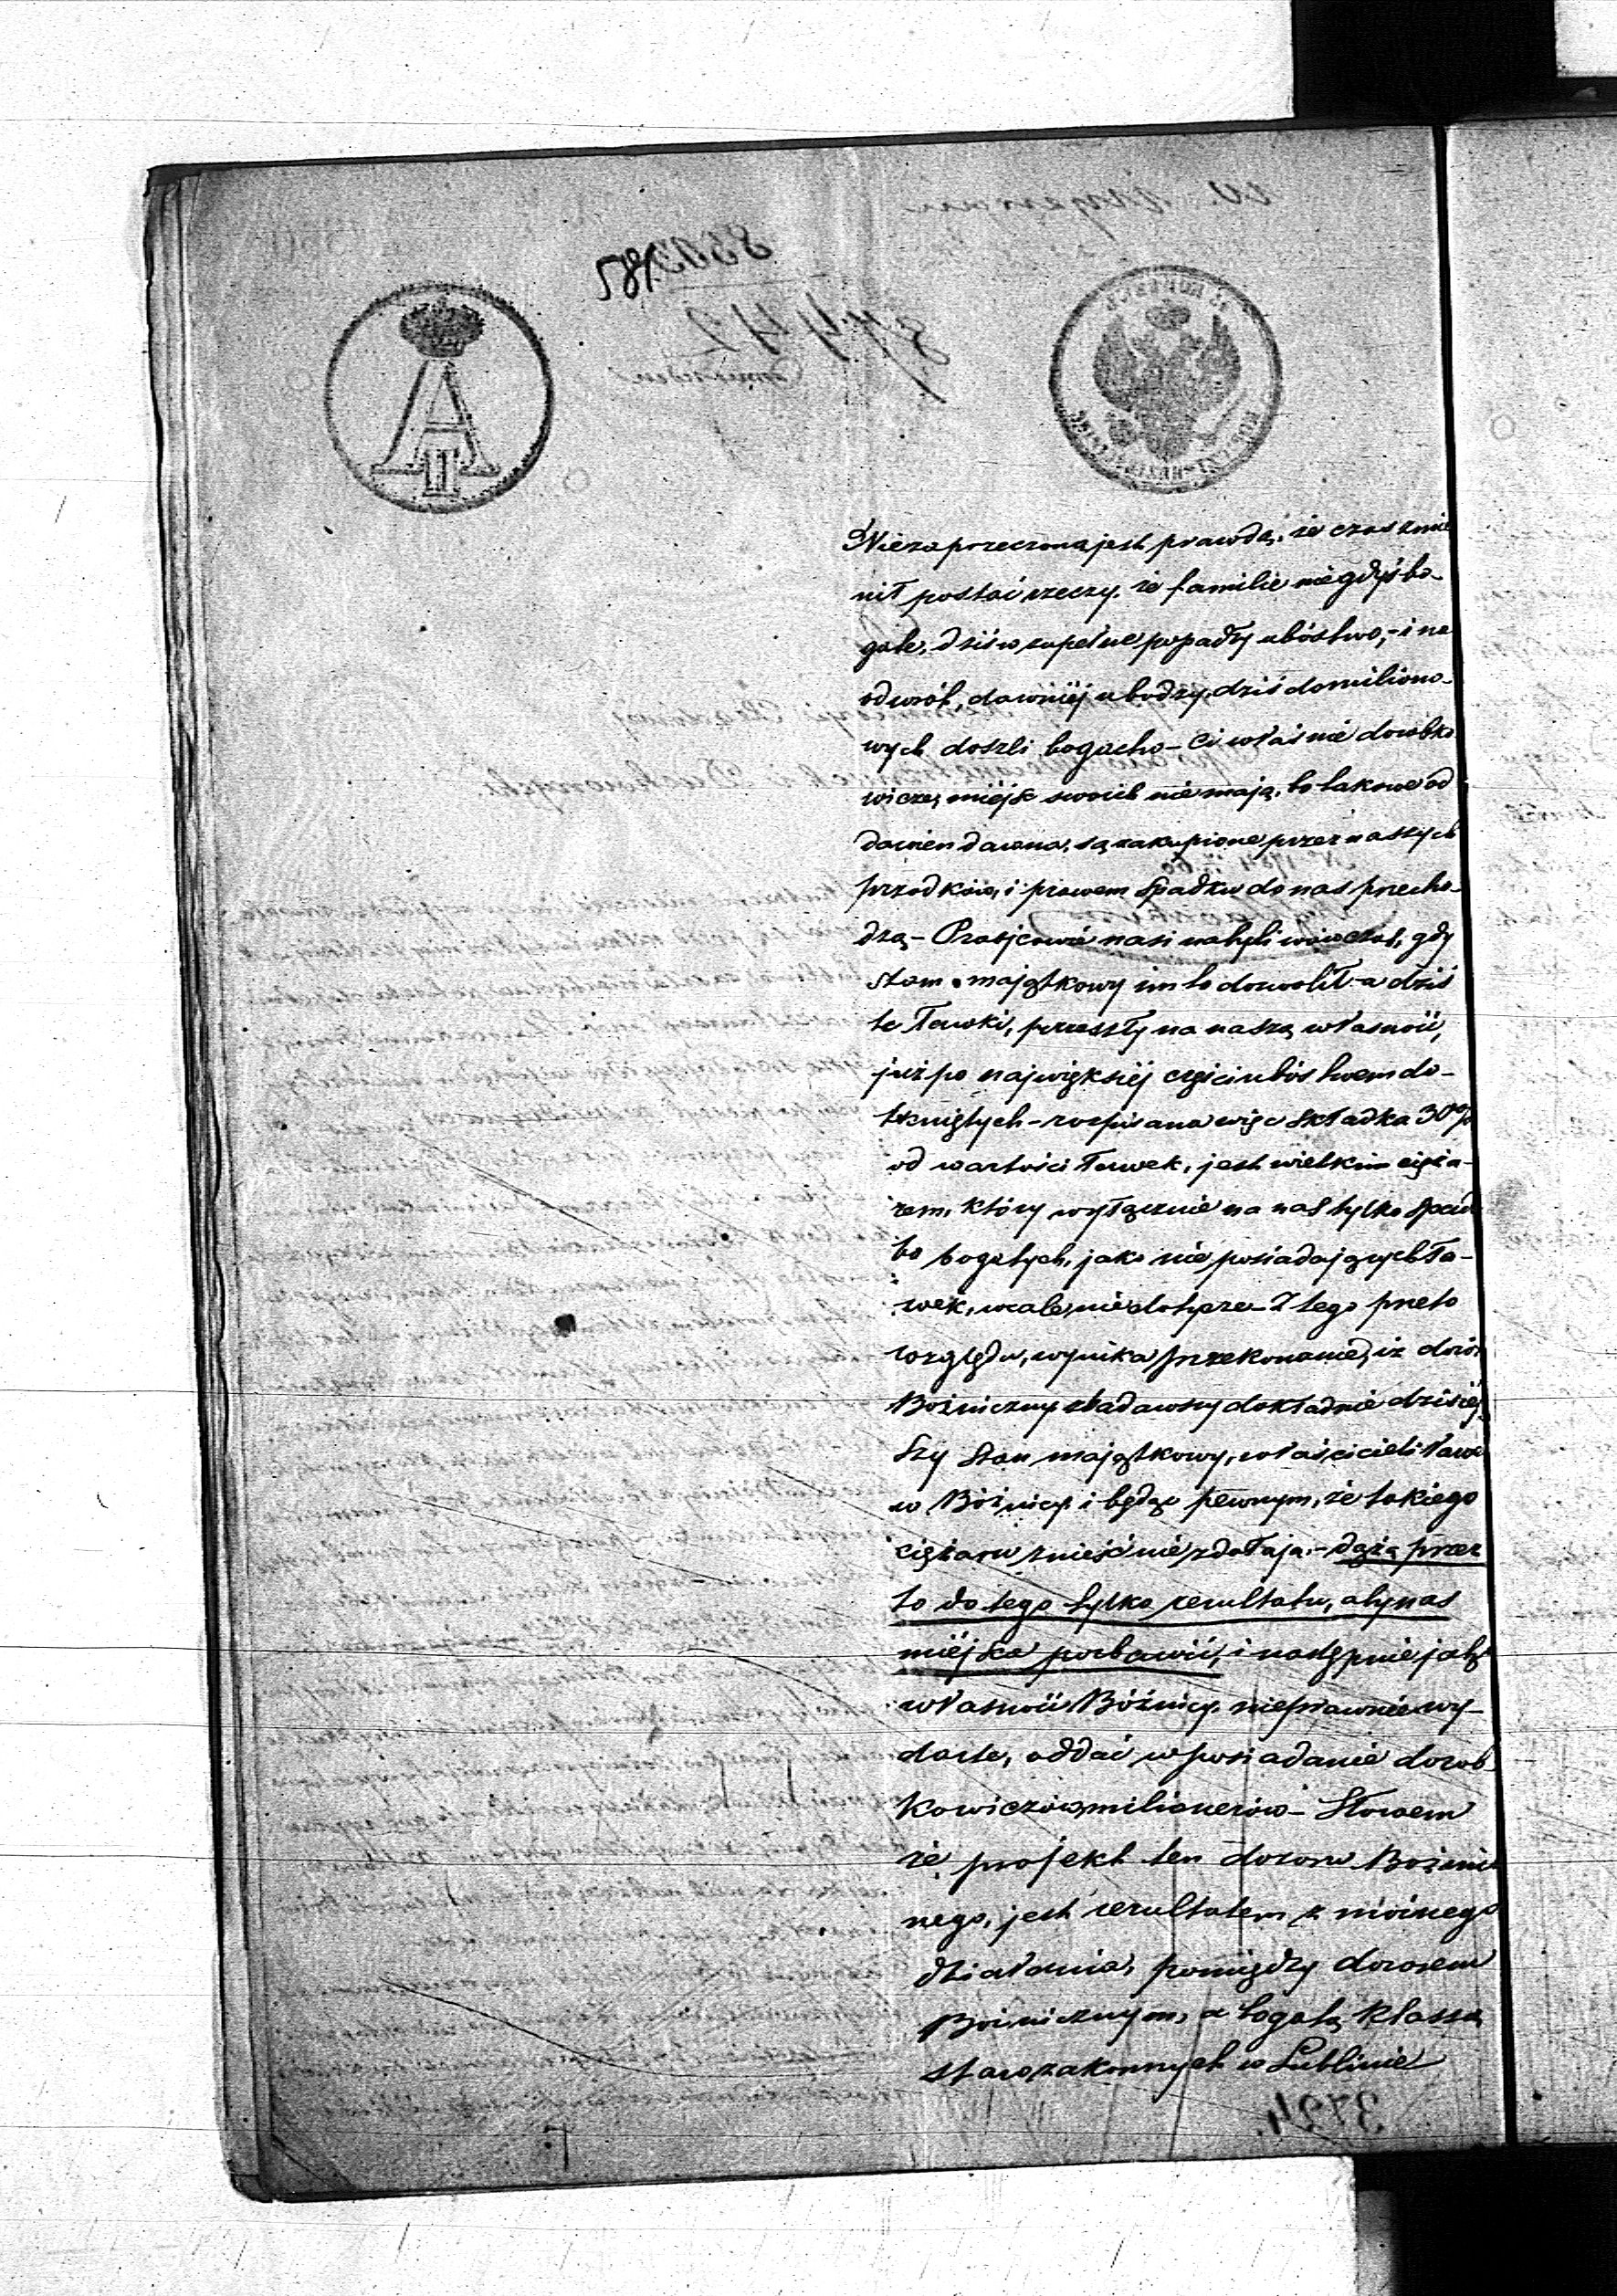 187
A
II
Niezaprzeczona jest prawda, że czas zmie
nił postać rzeczy, że familie niegdyś bo-
gate, dziś w zupełne popadły ubóstwo,- i na
odwrót, dawniéj ubodzy, dziś do miliono-
wych doszli bogactw - Ci właśnie dorobko
wicze, miéjsc swoich nie mają, bo takowe od
dawien dawna, są zakupione przez naszych
przodków, i prawem spadku do nas przecho-
dzą - Praojcowie nasi nabyli wówczas, gdy
stan majątkowy im to dozwolił - a dziś
te Ławki, przeszły na naszą własność,
już po największéj części ubóstwem do-
tkniętych - rozpisana więc składka 30%
od wartości Ławek, jest wielkim cięża-
rem, który wyłącznie na nas tylko spad
bo bogatych, jako nie posiadających Ła-
wek, wcale nie dotycze - Z tego przeto
względu, wynika przekonanie, iż dozór
Bożniczny zbadawszy dokładnie dzisiéj
szy stan majątkowy, właścicieli Ławe
w Bóżnicy, i będąc pewnym, że takiego
ciężaru znieść nie zdołają - dążą prze
to do tego tylko rezultatu, aby nas
miéjsca pozbawić, i następnie jako
własność Bóżnicy, nieprawnie wy-
darte, oddać w posiadanie dorob
kowiczów milionerów - Słowem
że projekt ten dozoru Bożnicz
nego, jest rezultatem zmównego
działania, pomiędzy dozorem
Bożnicznym, a bogatą klassą
starozakonnych w Lublinie